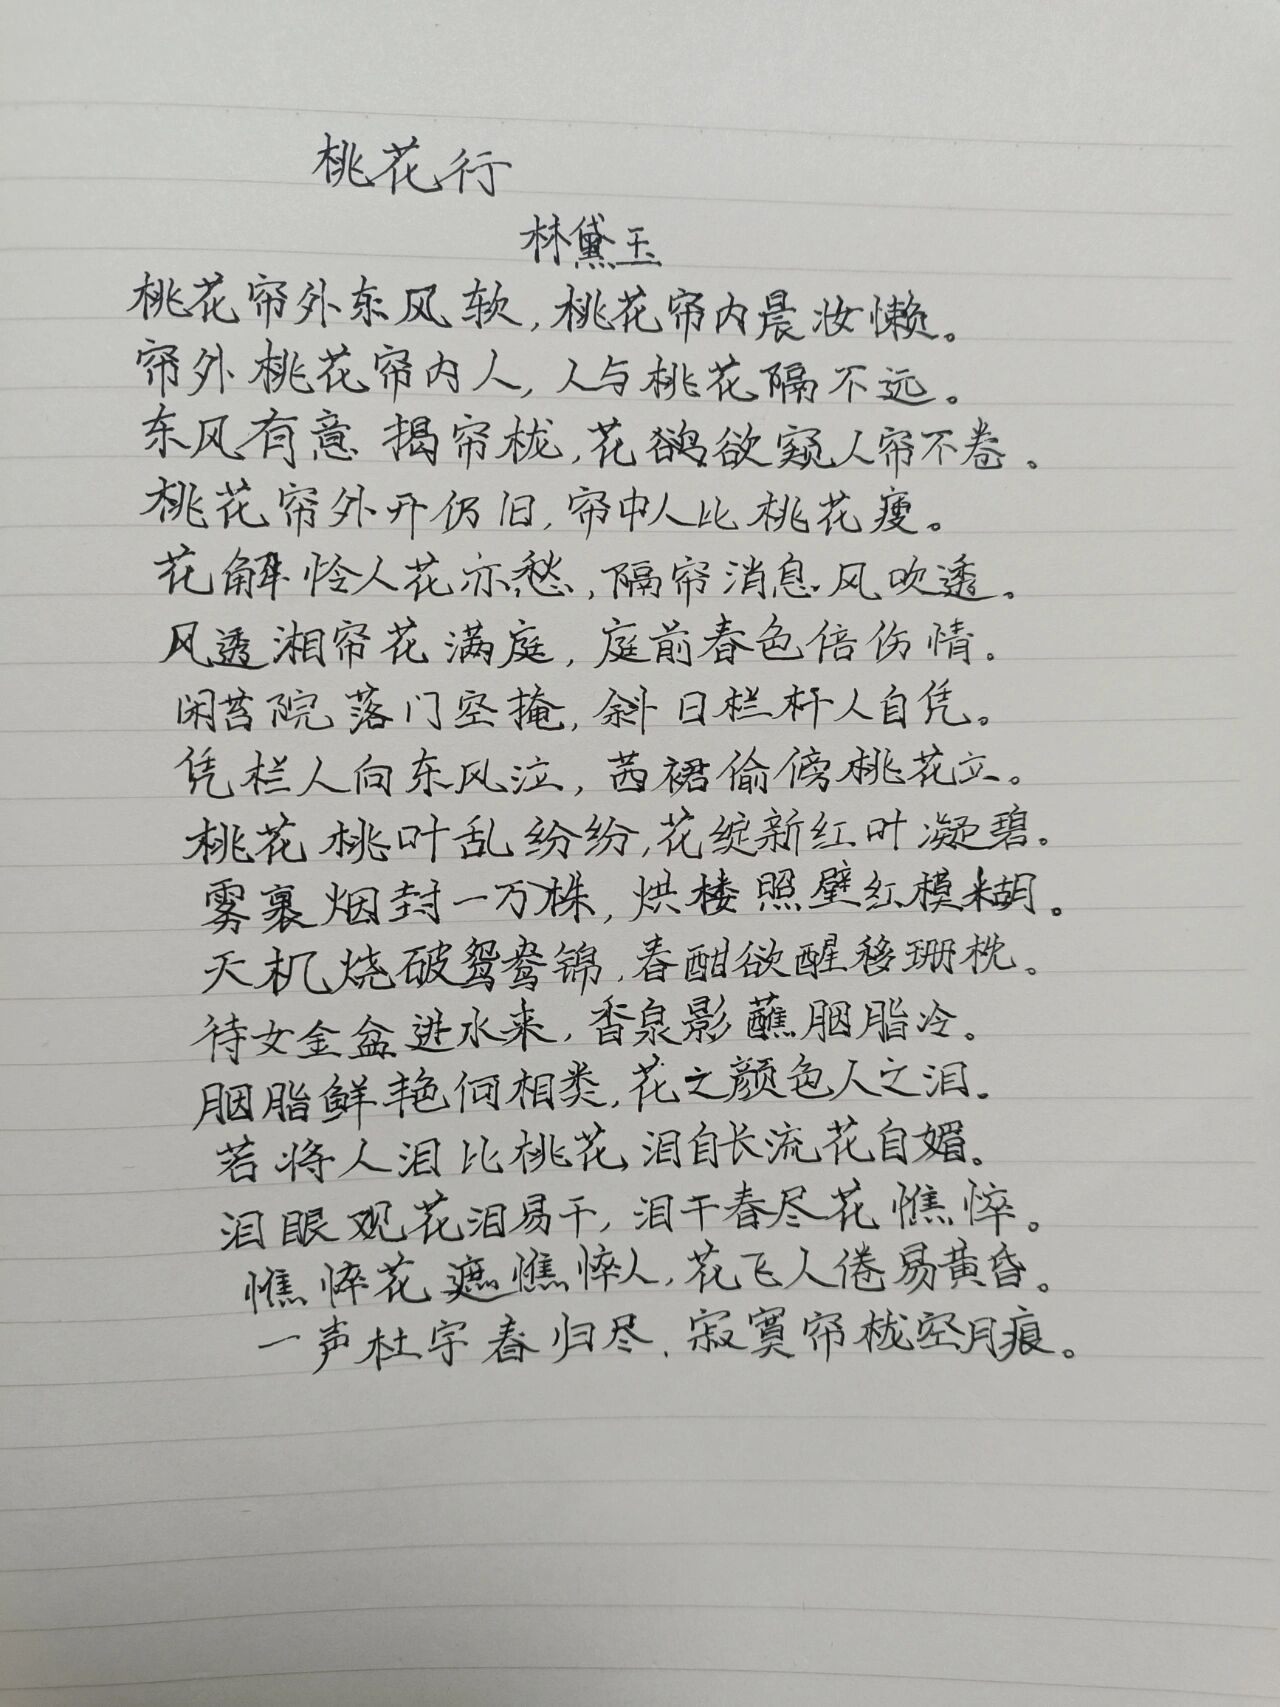 桃花行
林黛玉
桃花帘外东风软,桃花帘内晨妆懒。
帘外桃花帘内人,人与桃花隔不远。
东风有意揭帘栊,花欲窥人帘不卷。
桃花帘外开仍旧,帘中人比桃花瘦。
花解怜人花亦愁,隔帘消息风吹透。
风透湘帘花满庭,庭前春色倍伤情。
闲苔院落门空掩,斜日栏杆人自凭。
凭栏人向东风泣,茜裙偷傍桃花立。
桃花桃叶乱纷纷,花绽新红叶凝碧。
雾裹烟封一万株,烘楼照壁红模糊。
天机烧破鸳鸯锦,春酣欲醒移珊枕。
侍女金盆进水来,香泉影蘸胭脂冷。
胭脂鲜艳何相类,花之颜色人之泪。
若将人泪比桃花,泪自长流花自媚。
泪眼观花泪易干,泪干春尽花憔悴。
憔悴花遮憔悴人,花飞人倦易黄昏。
一声杜宇春归尽,寂寞帘栊空月痕。